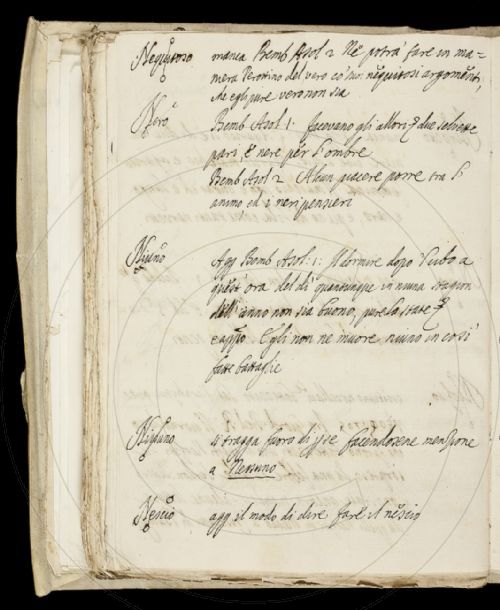 Neq̃uitoso manca Bemb Asol 2 Nè potrà fare in ma=
niera Perottino del vero cō suoi neq̃uitosi argomẽti,
che egli pure vero non sia
Nero Bemb Asol 1. facevano gli allori ꝑ due selvette
pari, e nere ꝑ l'ombre
Bemb Asol 2 Alcun piacere porre tra l'
animo ed i neri pensieri
Niuno Agg Bemb Asol: 1: Il dormire dopo 'l cibo a
quest'ora del dì quantunque in niuna stagion
dell'anno non sia buono, pure la state ꝑ
Egli non ne muore niuno in così
fatte battaglie
Nissuno si tragga fuori di ꝑ se facendosene menzione
a Nessuno
Nescio agg il modo di dire fare il nescio